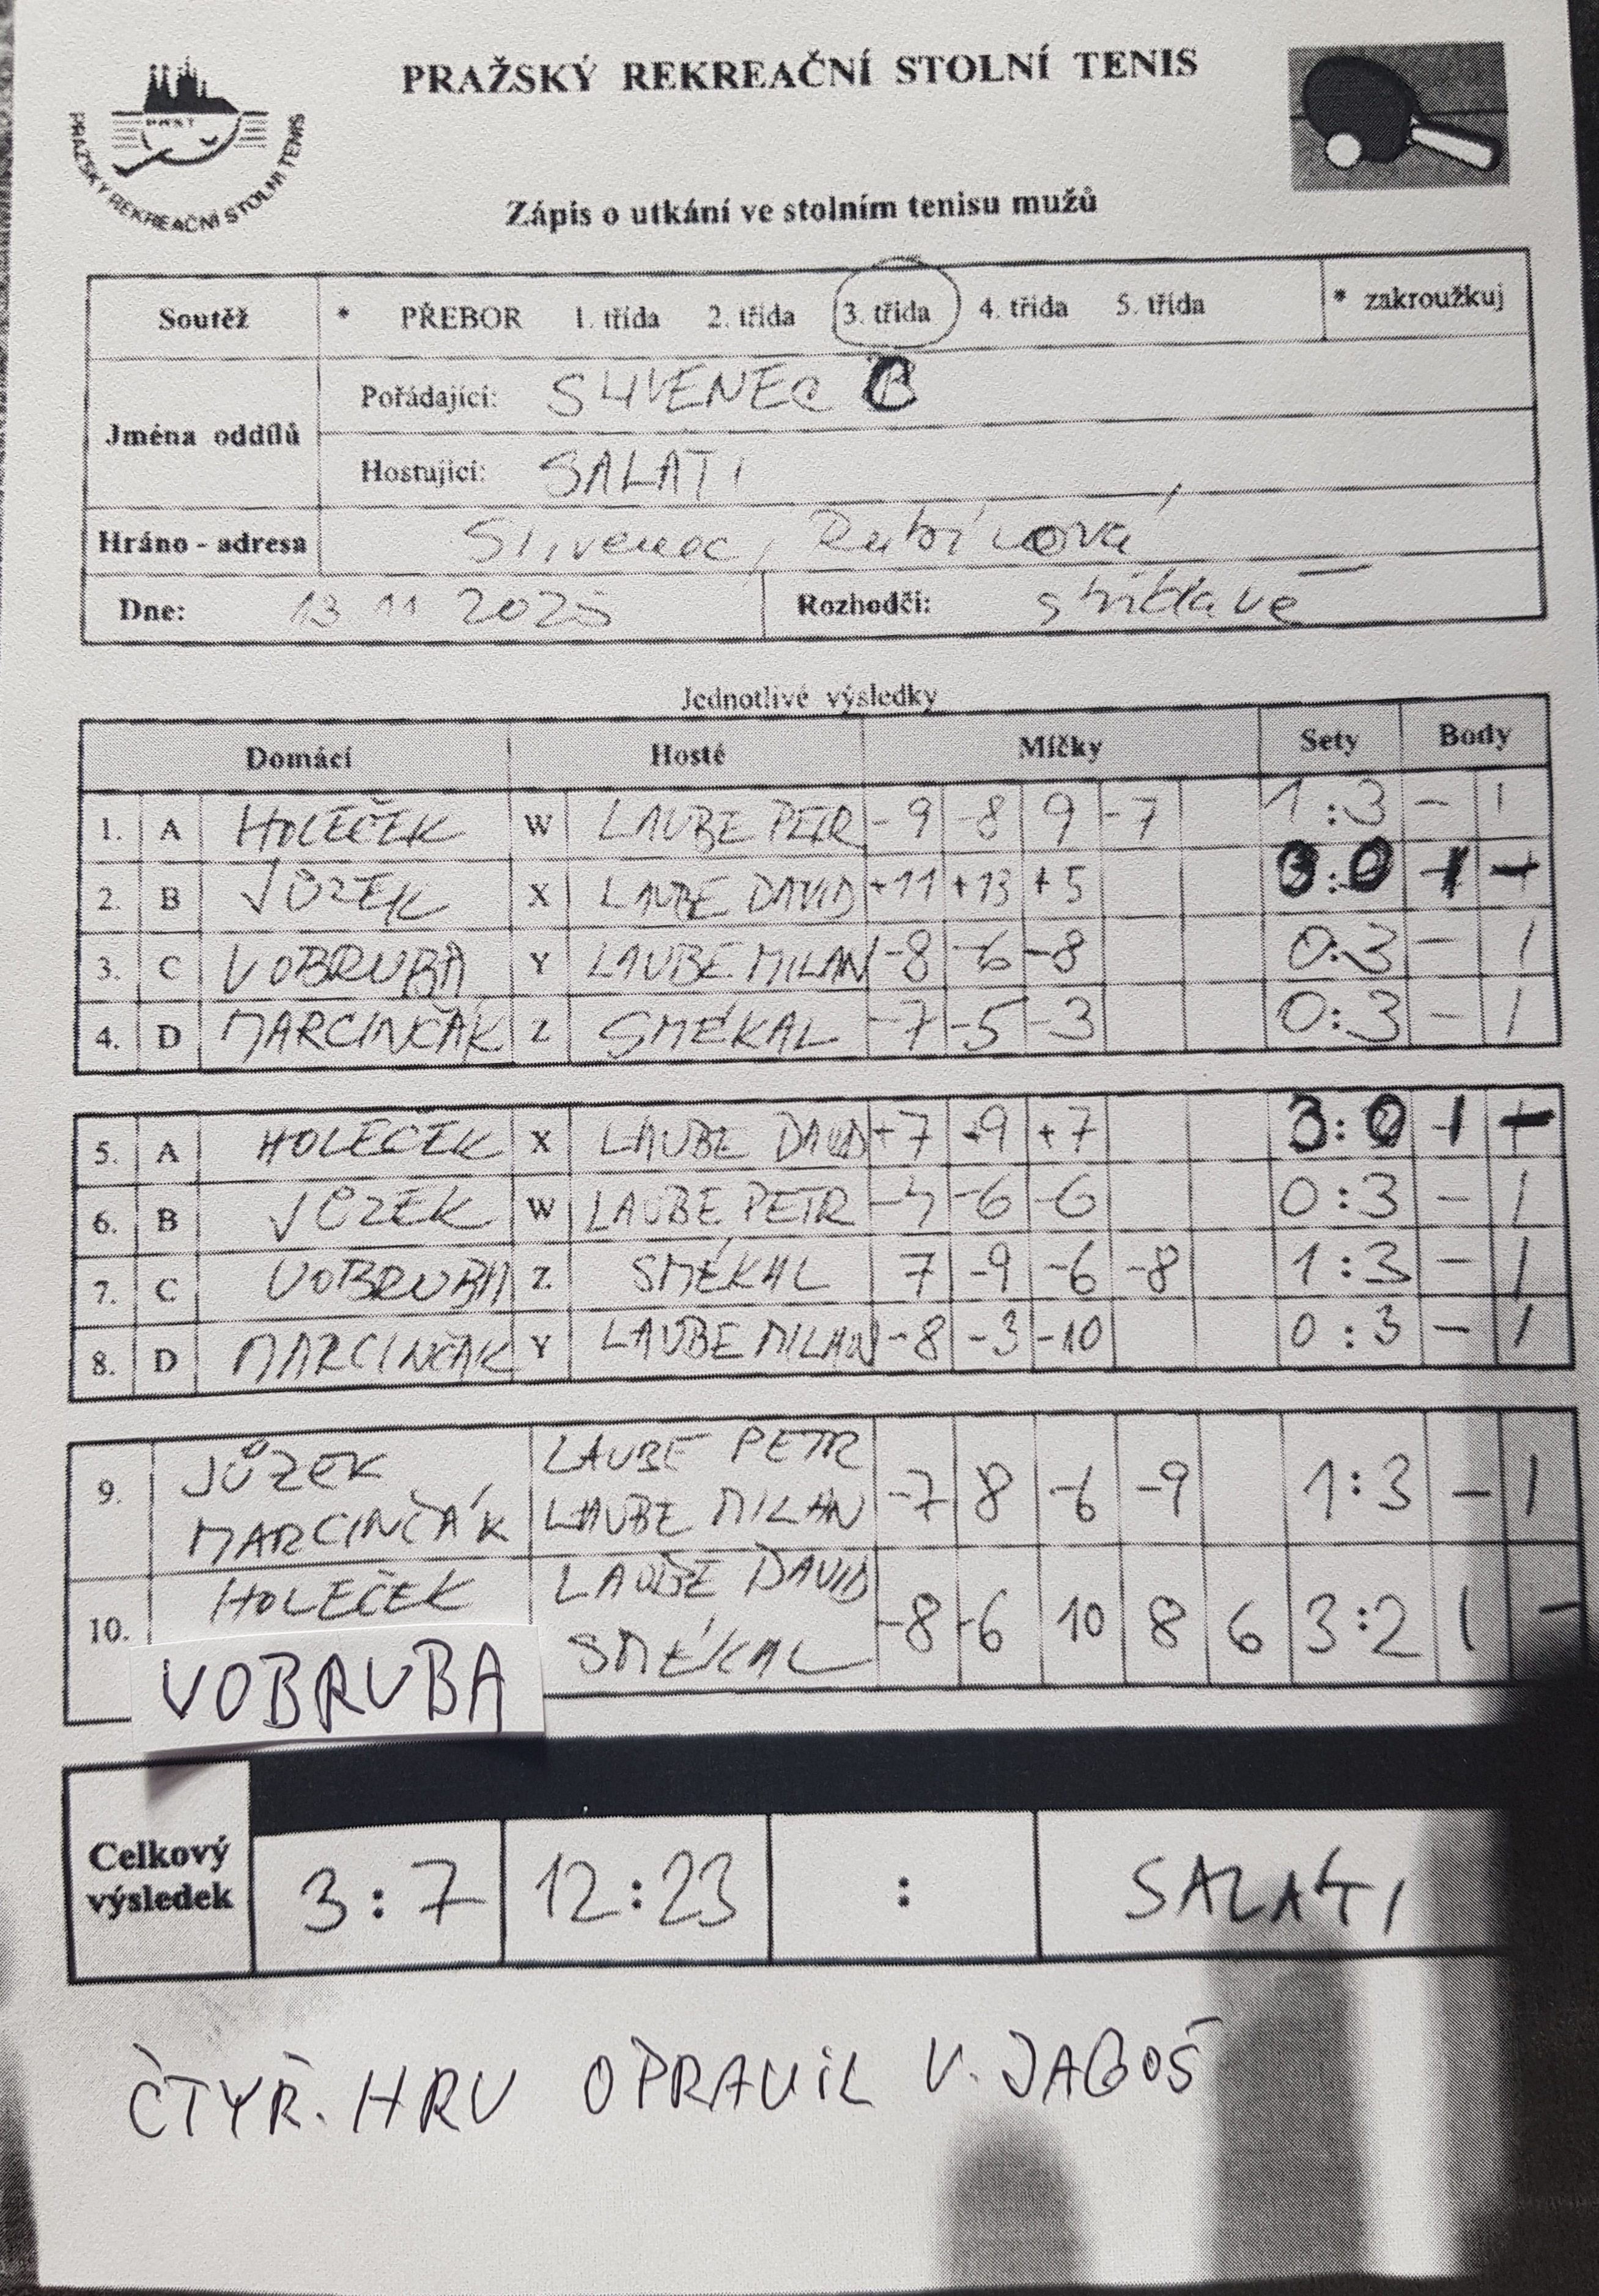 PRAŽSKÝ REKREAČNÍ STOLNÍ TENIS
PRST
PRAŽSKÝ REKREAČNÍ STOLNÍ TENIS
Zápis o utkání ve stolním tenisu mužů
Soutěž * PŘEBOR 1. třída 2. třída 3. třída 4. třída 5. třída * zakroužkuj
Jména oddílů
Pořádající: SLIVENEC
Hostující: SALATI
Hráno - adresa Slivenec, Rubínová
Dne: 13 11 2025 Rozhodčí: střídavě
Jednotlivé výsledky
Domácí Hosté Míčky Sety Body
1. A HOLEČEK W LAUBE PETR -9 -8 9 -7 1:3 - 1
2. B JŮZEK X LAUBE DAVID +11 +13 +5 3:0 1 -
3. C VOBRUBA Y LAUBE MILAN -8 -6 -8 0:3 - 1
4. D MARCINČÁK Z SMÉKAL -7 -5 -3 0:3 - 1
5. A HOLEČEK X LAUBE DAVID +7 +9 +7 3:0 1 -
6. B JŮZEK W LAUBE PETR -6 -6 0:3 - 1
7. C VOBRUBA Z SMÉKAL 7 -9 -6 -8 1:3 - 1
8. D MARCINČÁK Y LAUBE MILAN -8 -3 -10 0:3 - 1
9. JŮZEK MARCINČÁK LAUBE PETR LAUBE MILAN -7 8 -6 -9 1:3 - 1
10. HOLEČEK VOBRUBA LAUBE DAVID SMÉKAL -8 -6 10 8 6 3:2 1 -
Celkový výsledek 3:7 12:23 : SALATI
ČTYŘ. HRU OPRAVIL V. JAGOŠ